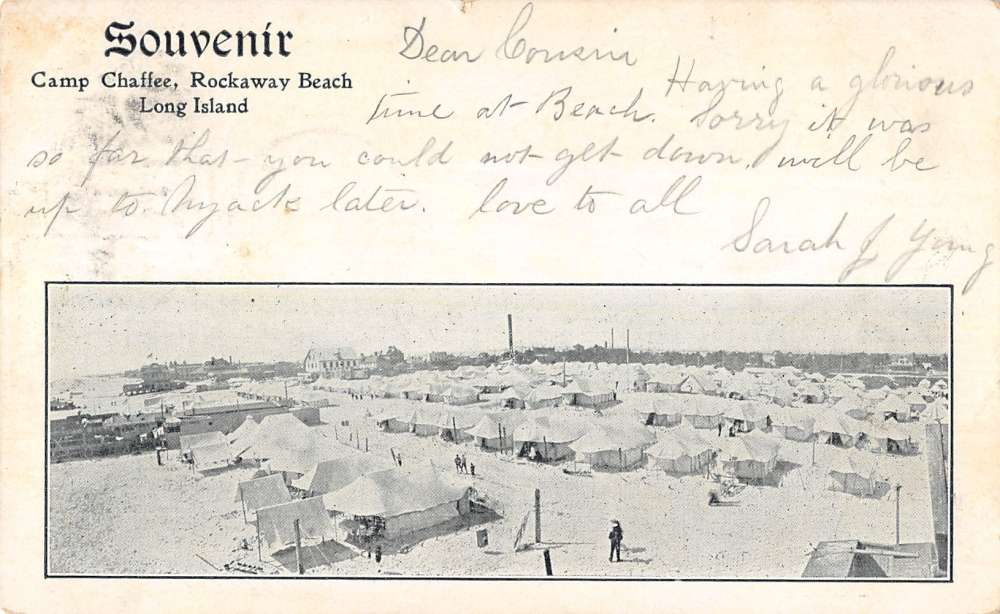 Souvenir
Camp Chaffee, Rockaway Beach
Long Island
Dear Cousin
Having a glorious
time at Beach. Sorry it was
so far that you could not get down, will be
up to Nyack later. love to all
Sarah J Young